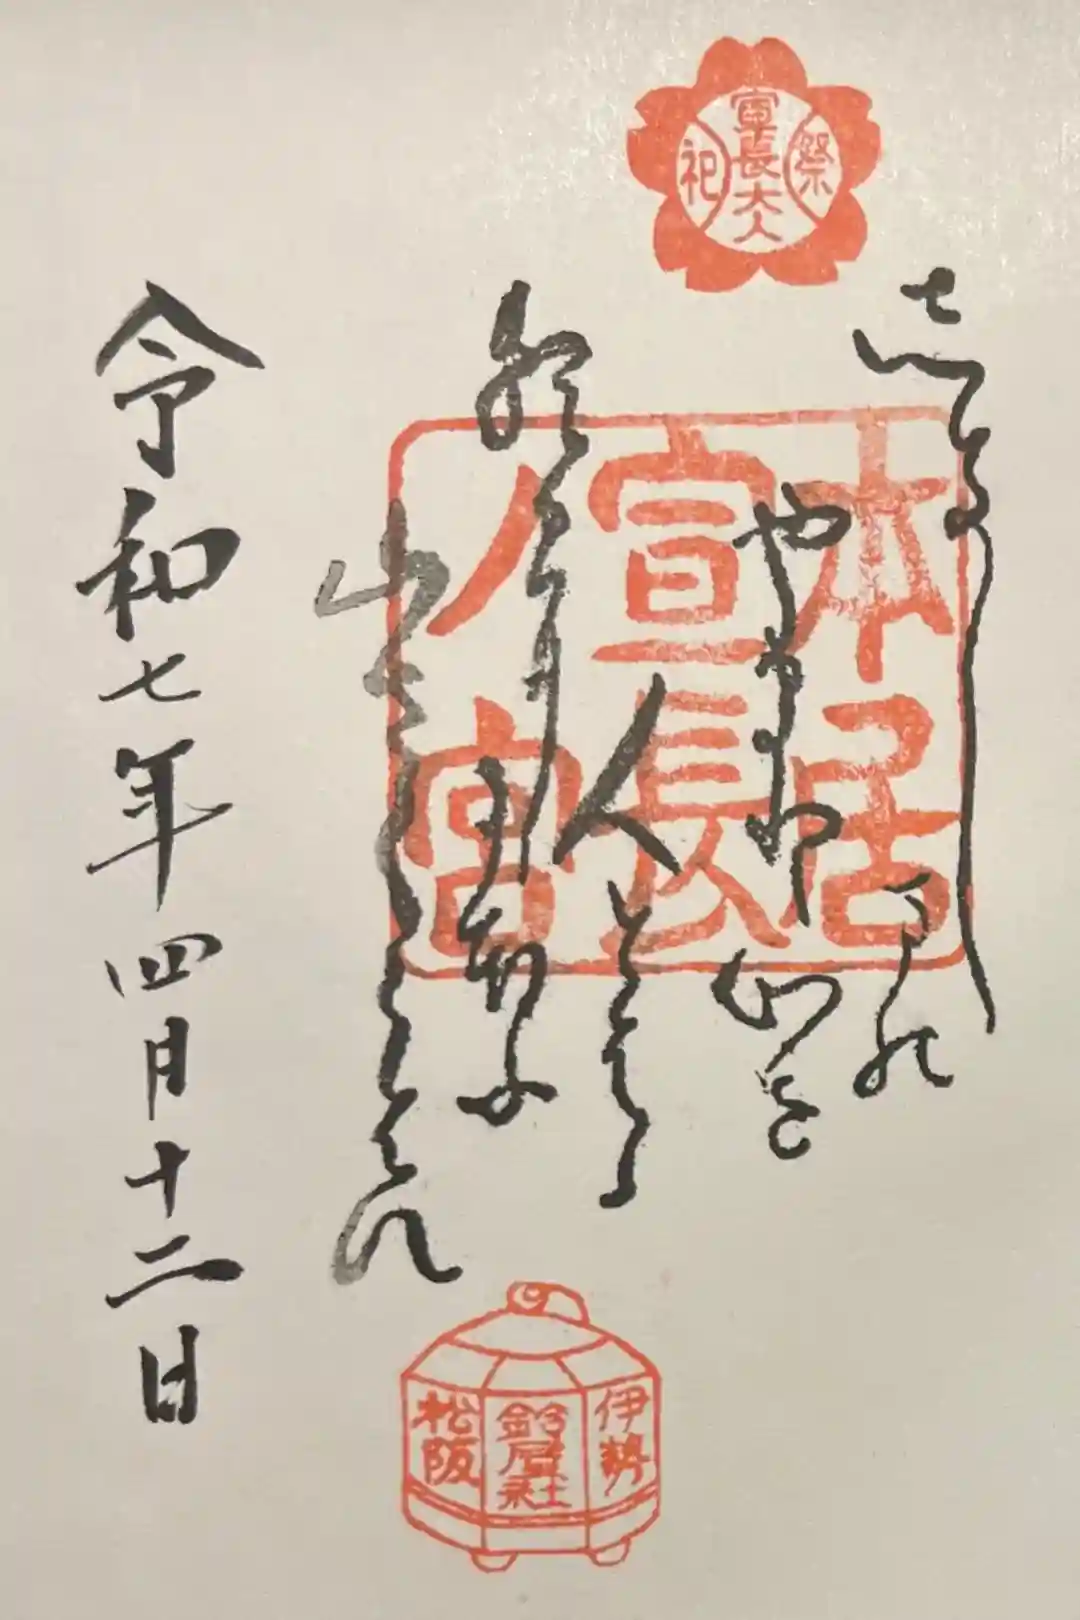 宣長大人
祭祀
しきしまの
やまと心を
人とはゝ
朝日ににほふ
山さくらはな
本居
宣長
ノ宮
令和七年四月十二日
伊勢
鈴屋社
松阪